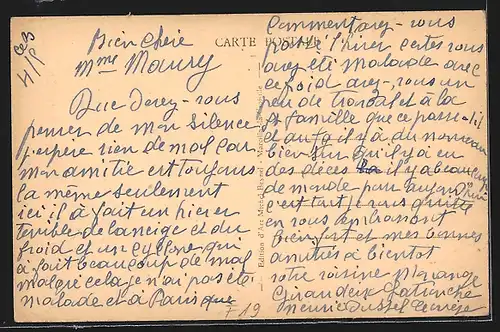 Bien chère
Mme Maury
Que devez-vous
penser de mon silence
j'espère rien de mal car
mon amitié est toujours
la même seulement
ici il a fait un hiver
terrible de la neige et du
froid et un cyclone qui
a fait beaucoup de mal
malgré cela je n'ai pas été
malade et à Paris que
CARTE POSTALE
Comment avez-vous
passé l'hiver certes vous
avez été malade avec
ce froid avez-vous un
peu de travail et à la
famille que ce passe-t-il
et au il y a du nouveau
bien sur qu'il y a eu
des décès il y a beaucoup
de monde pour aujourd'hui
c'est tout je vous quitte
en vous embrassant
bien fort et mes bonnes
amitiés à bientôt
votre voisine
Meuric Ussel Corrèze
F19